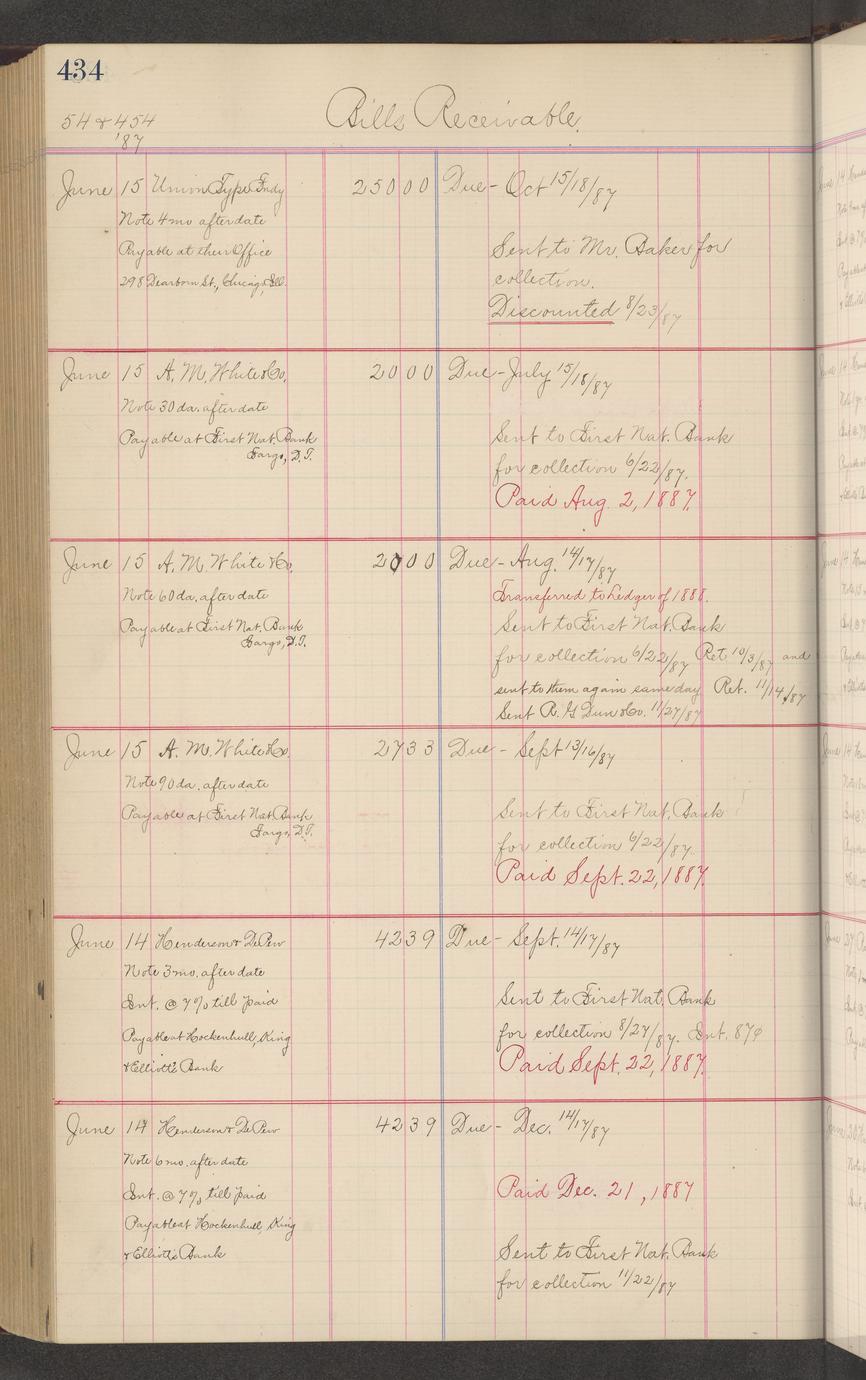 434
54 & 454
'87
Bills Receivable.
June 15 Union Type Fndy 250 00 Due - Oct 15/18/87
Note 4 mo after date
Payable at their Office Sent to Mr. Baker for
298 Dearborn St., Chicago, Ill. collection.
Discounted 8/23/87
June 15 A. M. White & Co. 20 00 Due - July 15/18/87
Note 30 da. after date
Payable at First Nat. Bank Sent to First Nat. Bank
Fargo, D.T. for collection 6/22/87.
Paid Aug. 2, 1887.
June 15 A. M. White & Co. 20 00 Due - Aug. 14/17/87
Note 60 da. after date Transferred to Ledger of 1888.
Payable at First Nat. Bank Sent to First Nat. Bank
Fargo, D.T. for collection 6/22/87 Ret 10/3/87 and
sent to them again same day Ret. 11/14/87
Sent R. G. Dun & Co. 11/27/87
June 15 A. M. White & Co. 27 33 Due - Sept 13/16/87
Note 90 da. after date
Payable at First Nat Bank Sent to First Nat. Bank
Fargo, D.T. for collection 6/22/87.
Paid Sept. 22, 1887.
June 14 Henderson & DePew 42 39 Due - Sept. 14/17/87
Note 3 mo. after date
Int. @ 7% till paid Sent to First Nat. Bank
Payable at Hockenhull, King for collection 8/27/87. Int. 87¢
& Elliott's Bank Paid Sept. 22, 1887.
June 14 Henderson & DePew 42 39 Due - Dec. 14/17/87
Note 6 mo. after date
Int. @ 7% till paid Paid Dec. 21, 1887
Payable at Hockenhull, King
& Elliott's Bank Sent to First Nat. Bank
for collection 11/22/87